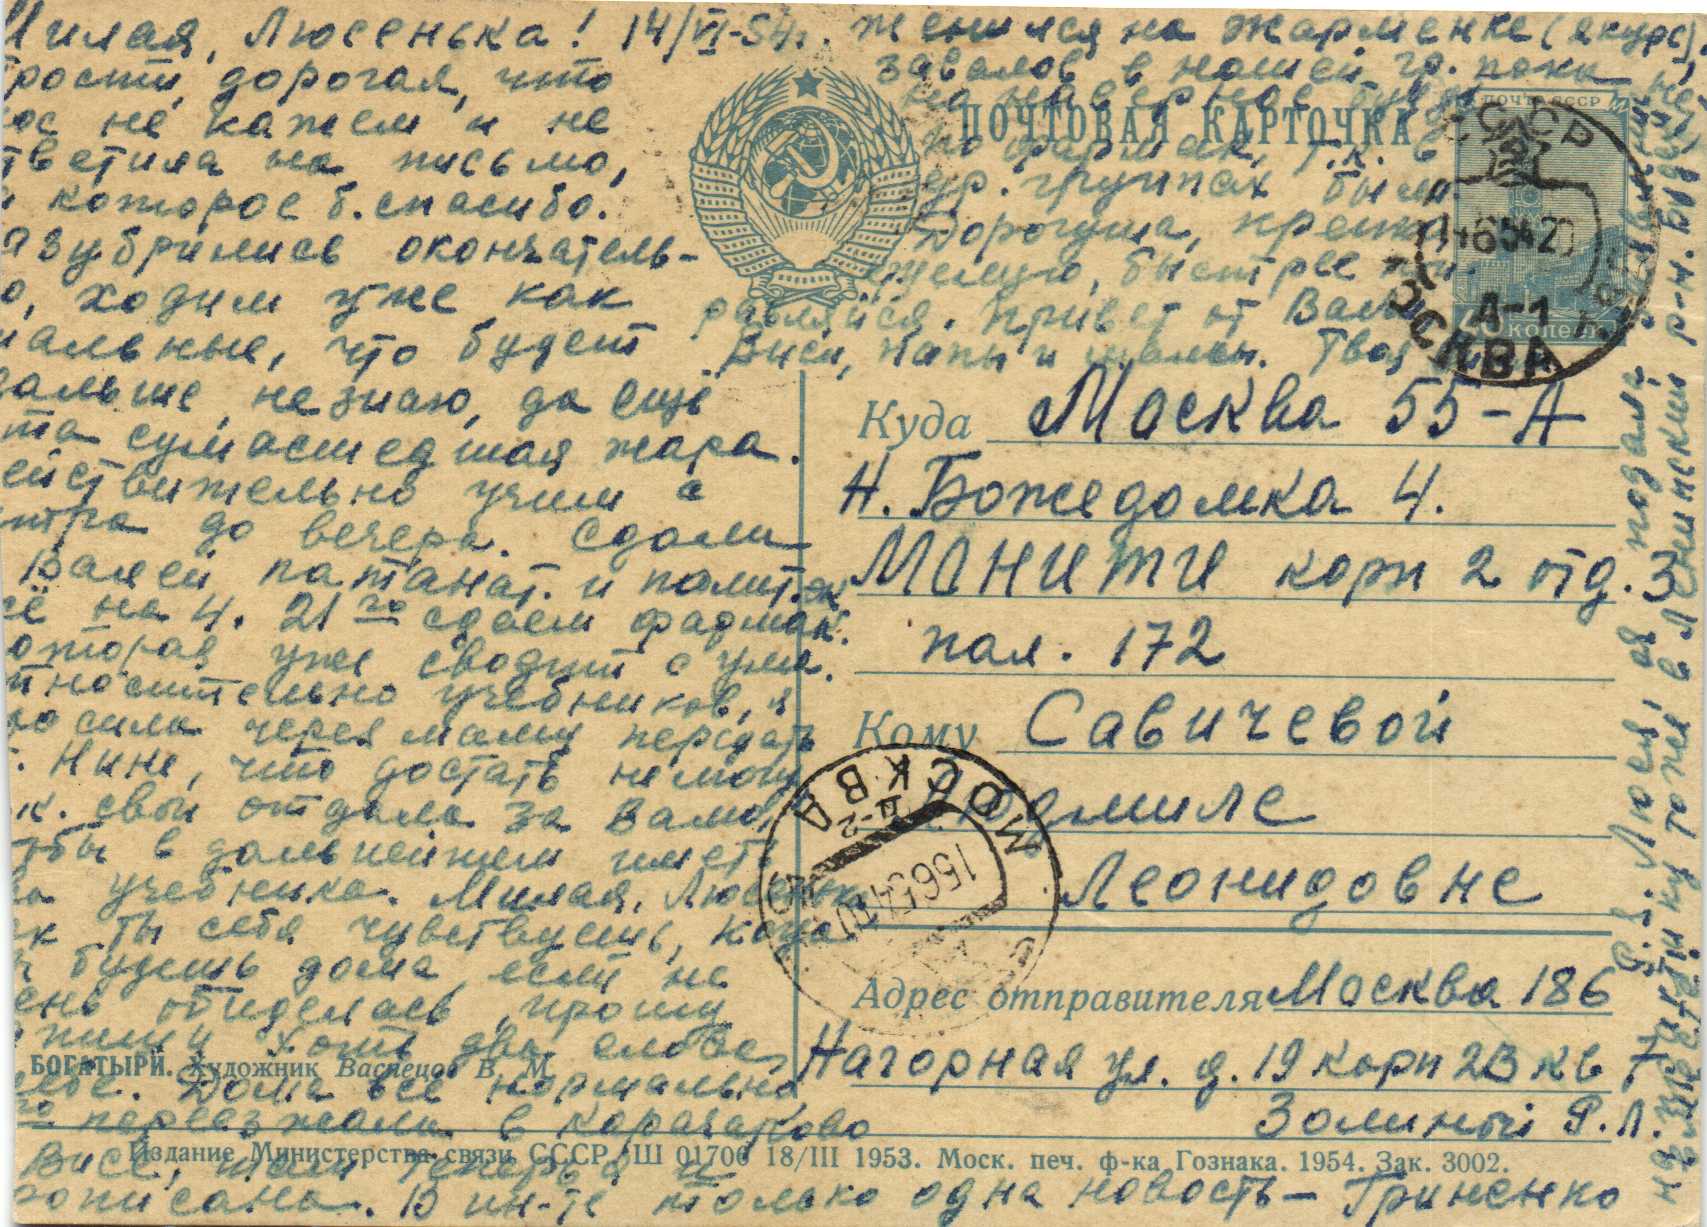 Милая, Люсенька! 14/VI-54г.
прости, дорогая, что
не кажем и не
ответила на письмо,
за которое б. спасибо.
Зазубрились окончатель-
но, ходим уже как
что будет
дальше, не знаю, да ещё
эта сумасшедшая жара.
Действительно учим с
утра до вечера. Сдали
с Валей патанат. и полит.эк.
всё на 4. 21го сдаем фармак.
которая уже сводит с ума.
Относительно учебников, я
просила через маму передать
т. Нине, что достать не могу
т.к. свой отдала за Валю,
чтобы в дальнейшем иметь
два учебника. Милая, Люсенька
как ты себя чувствуешь, когда
ты будешь дома, если не
очень обиделась, прошу
напиши хоть два слова
о себе. Дома все нормально,
переезжали в Карачарово
к Висе, там теперь я и
прописана. В ин-те только одна новость - Гриненко
женился на Жарменке (я курс),
завалов в нашей гр. пока нет,
но наверное будут
по фармак, т.к. в
др. группах были.
Дорогуша, крепко
целую, быстрее поп-
равляйся. Привет от Вали,
Виси, папы и мамы. Твоя
P.S. Люся, ая подала
на участку тоже в Ленинский р-н. Будем
вместе
ПОЧТОВАЯ КАРТОЧКА
ПОЧТА СССР
40 КОПЕЕК
СССР
14 6 54 20
А-1
МОСКВА
Куда Москва 55-А
Н. Божедомка 4.
МОНИТИ корп 2 отд. 3
пал. 172
Кому Савичевой
Людмиле
Леонидовне
МОСКВА
Д-2
15 6 54 10
Адрес отправителя Москва 186
Нагорная ул. д. 19 корп 2В кв 7
Золиной Р.Л.
БОГАТЫРИ. Художник Васнецов В. М.
Издание Министерства связи СССР. Ш 01706 18/III 1953. Моск. печ. ф-ка Гознака. 1954. Зак. 3002.